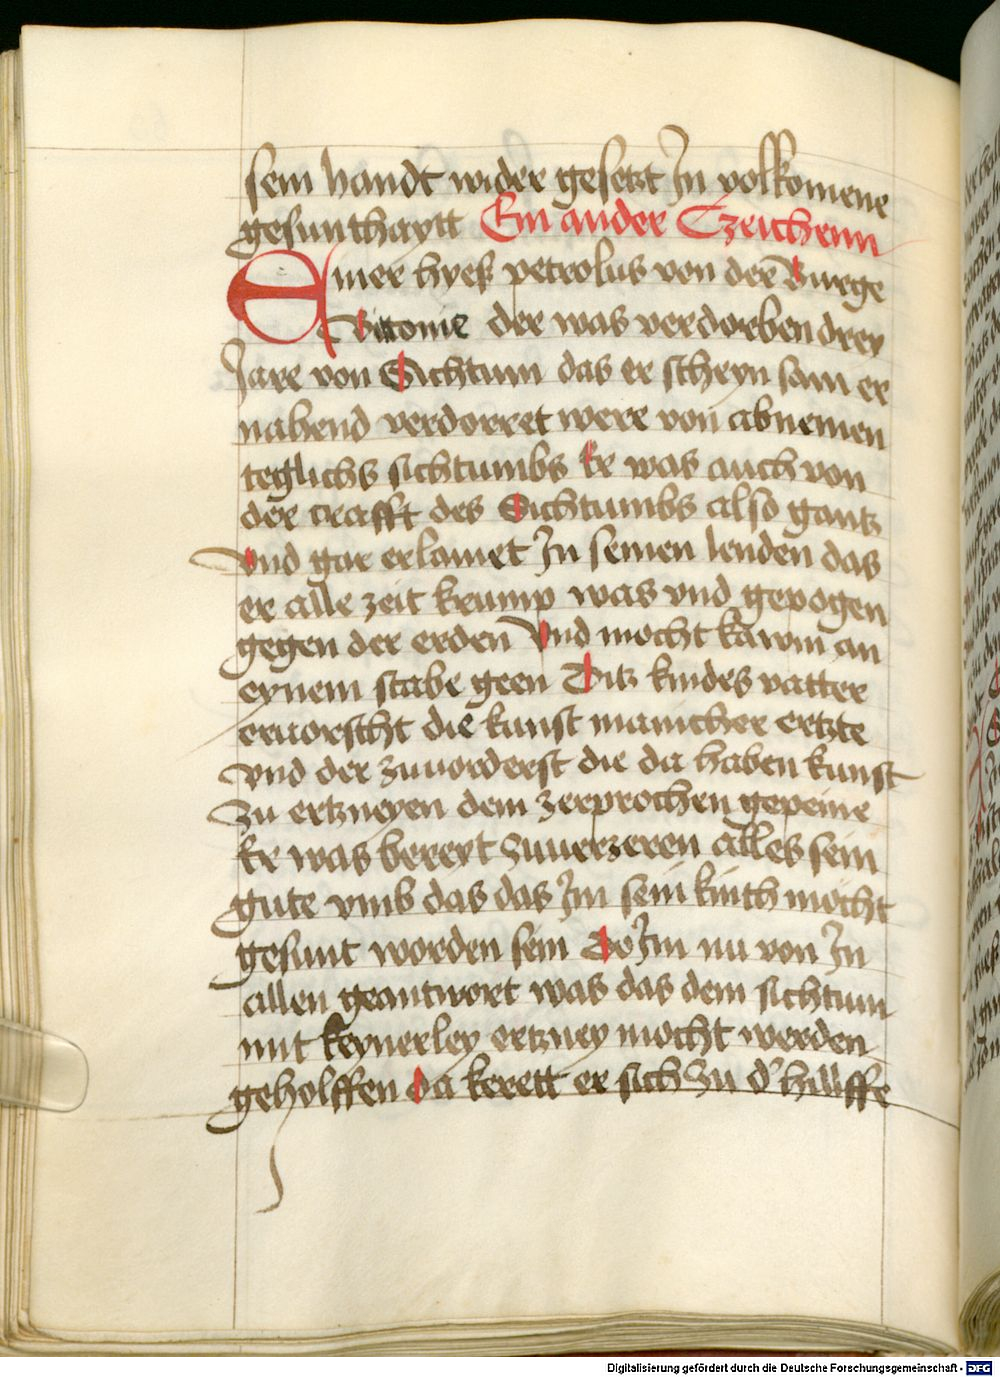 sein handt wider gesetzt Jn volkomene
gesunthaytt Ein ander Czeichenn
Einer hyeß petrolus von der Burge
Bitonie der was verdorben drey
Jare von Sichtum das er scheyn sam er
nahend verdorret were von abnemen
teglichs sichtumbs Er was auch von
der crafft des Sichtumbs also gantz
Vnd gar erlamet Jn seinen lenden das
er alle zeit krump was vnd gepogen
gegen der erden Vnd mocht kawm an
eynem stabe geen Ditz kindes vatter
eruorscht die kunst mancher ertzte
vnd der zuuorderst die da haben kunst
Zu ertzneyen dem zerprochen gepeine
Er was bereyt Zuuerzeren alles sein
gute vmb das das Jm sein kinth mocht
gesunt worden sein Do Jm nu von Jn
allen geantwort was das dem sichtum
mit keynerley ertzney mocht werden
geholffen da kerett er sich Zu d' hilffe
Digitalisierung gefördert durch die Deutsche Forschungsgemeinschaft - DFG